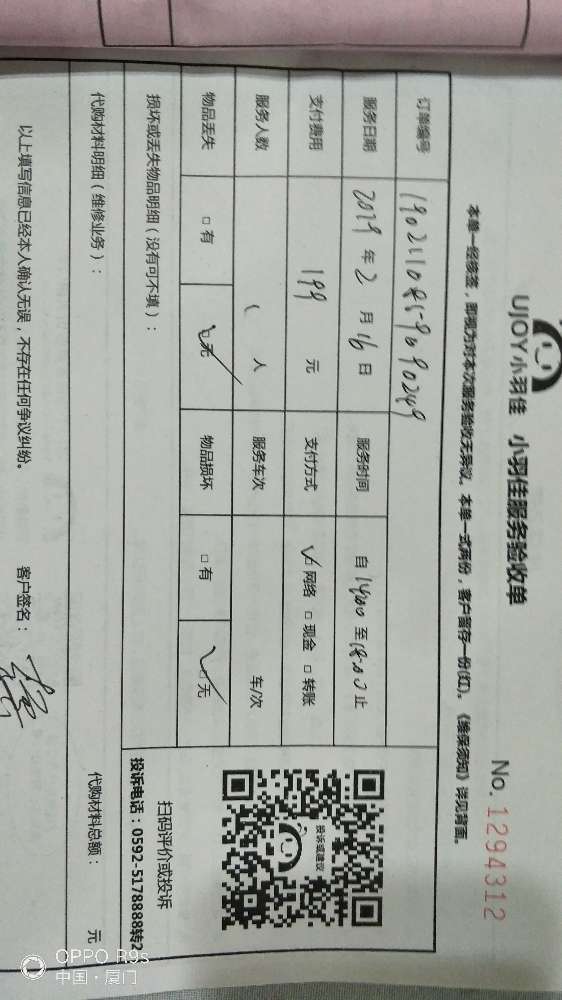 UJOY小羽佳 小羽佳服务验收单
No.1294312
本单一经核签，即视为对本次服务验收无异议。本单一式两份，客户留存一份(红)。《维保须知》详见背面。
订单编号 190211085909 0249
服务日期 2019 年 2 月 16 日 服务时间 自 14:00 至 18:00 止
支付费用 199 元 支付方式 ☑网络 □现金 □转账
服务人数 1 人 服务车次 车/次
物品丢失 □有 ☑无 物品损坏 □有 ☑无
投诉或建议
扫码评价或投诉
投诉电话：0592-5178888转2
损坏或丢失物品明细（没有可不填）：
代购材料明细（维修业务）： 代购材料总额： 元
以上填写信息已经本人确认无误，不存在任何争议纠纷。 客户签名：
OPPO R9s
中国·厦门